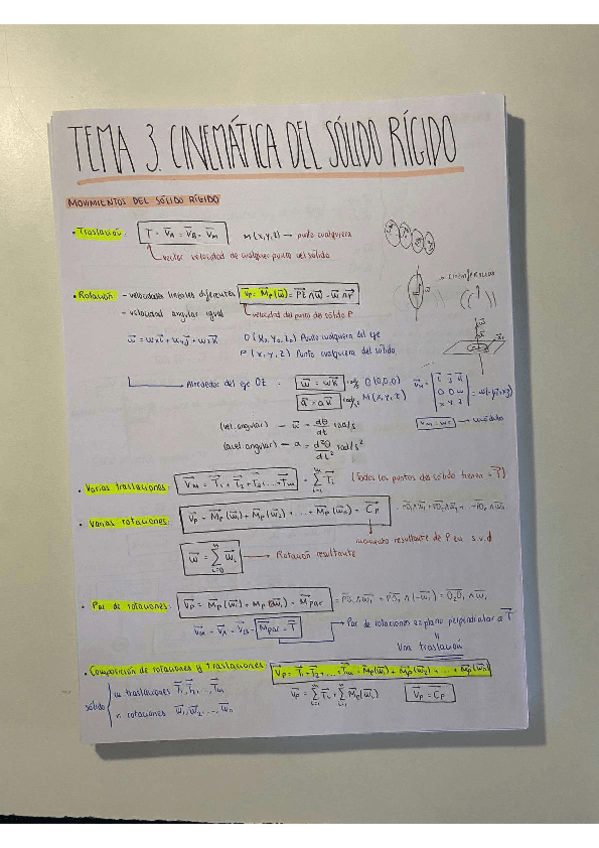 TEMA 3. CINEMÁTICA DEL SÓLIDO RÍGIDO
MOVIMIENTOS DEL SÓLIDO RÍGIDO
• Traslación: T = V_A = V_B = V_M   M(x,y,z) → punto cualquiera
vector velocidad de cualquier punto del sólido
• Rotación: - velocidades lineales diferentes V_P = M_P(ω) = PE ∧ ω = ω ∧ P
- velocidad angular igual
velocidad del punto de sólido P
O(x₀, y₀, z₀) Punto cualquiera del eje
P(x, y, z) Punto cualquiera del sólido
Alrededor del eje OZ - ω = ωk O(0,0,0)
α = αk M(x,y,z)
V_M = | i j k / 0 0 ω / x y z |
(vel. angular) - ω = dθ/dt rad/s
(acel. angular) - α = d²θ/dt² rad/s²
• Varias traslaciones: V_M = T₁ + T₂ + T₃ ... + T_m = Σ T_i (Todos los puntos del sólido tienen = T)
• Varias rotaciones: V_P = M_P(ω₁) + M_P(ω₂) + ... + M_P(ω_n) = C_P
momento resultante de P en s.v.d
ω = Σ ω_i → Rotación resultante
• Par de rotaciones: V_P = M_P(ω₁) + M_P(ω₁) = M_par
V_M = V_A = V_B = M_par = T → Par de rotaciones es plano perpendicular a T
Una traslación
• Composición de rotaciones y traslaciones: V_P = T₁ + T₂ + ... + T_m + M_P(ω₁) + M_P(ω₂) + ... + M_P(ω_n)
sólido { m traslaciones T₁, T₂, ..., T_m
n rotaciones ω₁, ω₂, ..., ω_n
V_P = Σ T_i + Σ M_P(ω_i)   V_P = C_P